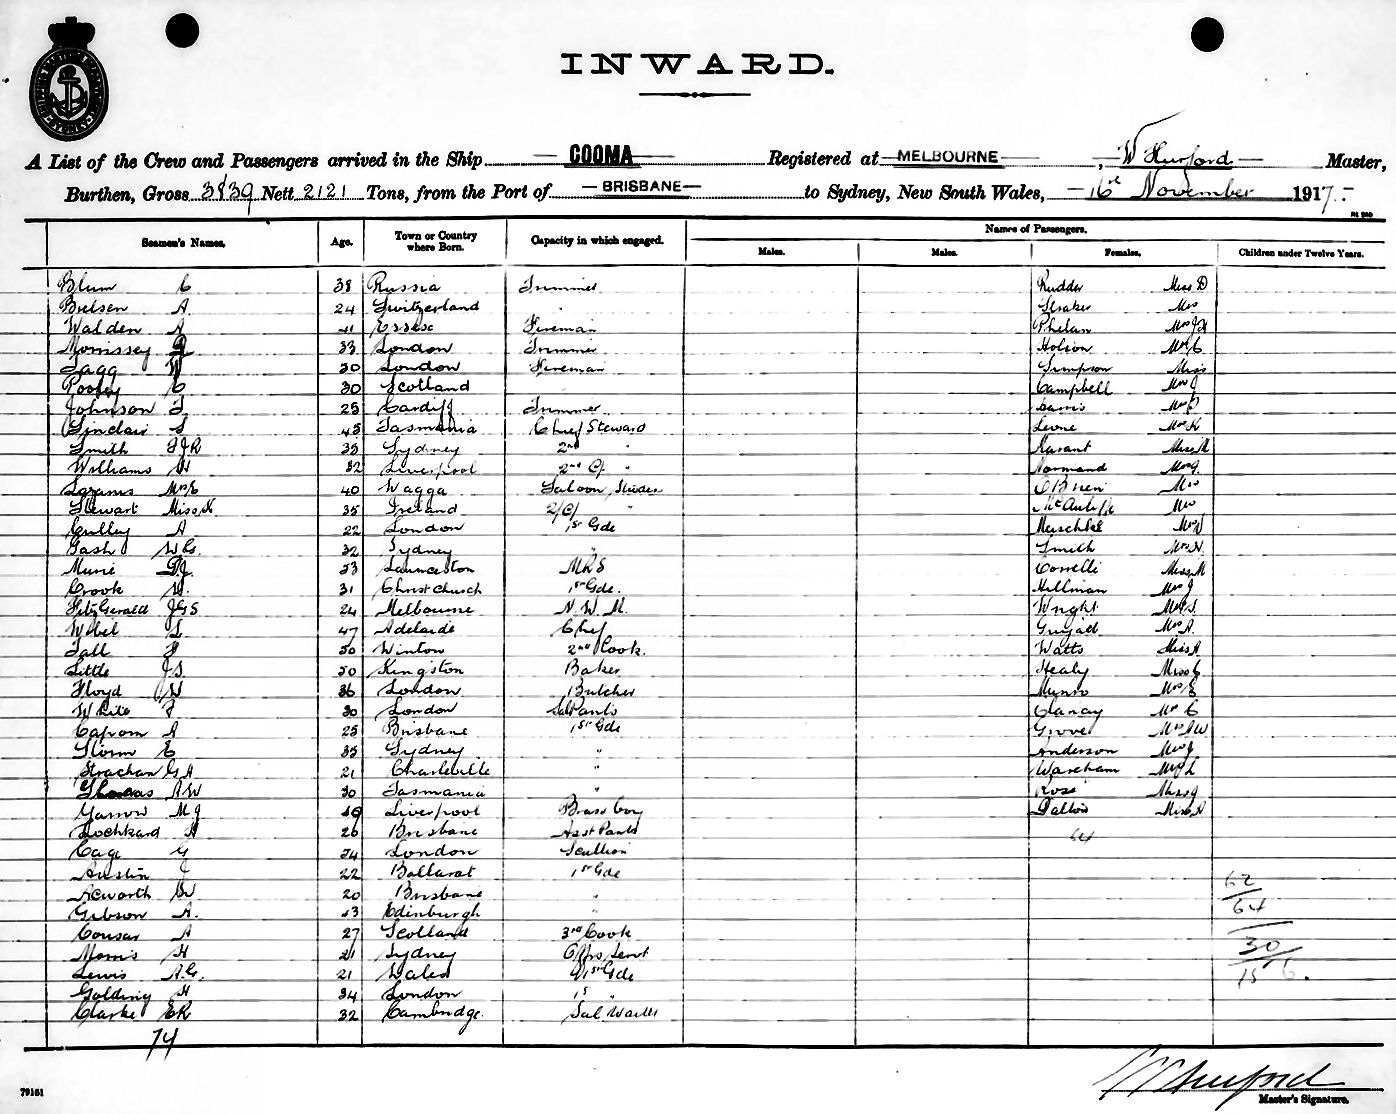 INWARD.
SYDNEY
A List of the Crew and Passengers arrived in the Ship COOMA Registered at MELBOURNE, W Hurford Master,
Burthen, Gross 3839 Nett 2121 Tons, from the Port of BRISBANE to Sydney, New South Wales, 16th November 1917
Seamen's Names. Age. Town or Country where Born. Capacity in which engaged. Names of Passengers.
Males. Males. Females. Children under Twelve Years.
Blum C 38 Russia Trimmer Rudder Miss D
Bielsen A 24 Switzerland " Straker Mrs
Walden A 41 Essex Fireman Phelan Mrs
Morrissey 33 London Trimmer Mrs C
Tagg W 30 London Fireman Simpson Miss
Pooley C 30 Scotland Campbell Mrs J
Johnson T 25 Cardiff Trimmer Mrs
Sinclair S 45 Tasmania Chief Steward Levine Mrs K
Smith FJR 35 Sydney 2nd " Miss M
Williams H 32 Liverpool 2nd Cl " Normand Mrs G
Mrs E 40 Wagga Saloon O'Brien Mrs
Stewart Miss N 35 Ireland 2/Cl " Mrs
Culley A 22 London 1st Gde Mrs
Gash W G. 32 Sydney " Smith Mrs H.
33 Launceston M R S Corelli Miss M
Crook H. 31 Christchurch 1st Gde. Hillman Mrs J
FitzGerald JGS 24 Melbourne Wright Mrs S.
47 Adelaide Chef Mrs A.
Tall F 50 Winton 2nd Cook. Watts Miss A
Little J.S. 50 Kingston Baker Healy Miss C
Floyd W 36 London Butcher Munro Mrs E
White F 30 London Mrs C
Caprom A 25 Brisbane 1st Gde Grove Mrs A W
Storm E 35 Sydney " Anderson Mrs J
Strachan G A 21 Charleville " Wareham Mrs L
A W 30 Tasmania " Rose Miss J
M J Liverpool Brass boy Dalton Miss A
Lockhard A 26 Brisbane Asst Pants 64
G 24 London Scullion
Austin J 22 Ballarat 1st Gde
Acworth W 20 Brisbane " 62
Gibson A. 43 Edinburgh " 64
Cousar A 27 Scotland 3rd Cook
Morris H 21 Sydney Offrs Servt 30
Lewis A.G. 21 Wales 1st Gde 156.
Golding H 34 London 1st "
Clarke ER 32 Cambridge. Sal Waiter
74
W Hurford
79151 Master's Signature.